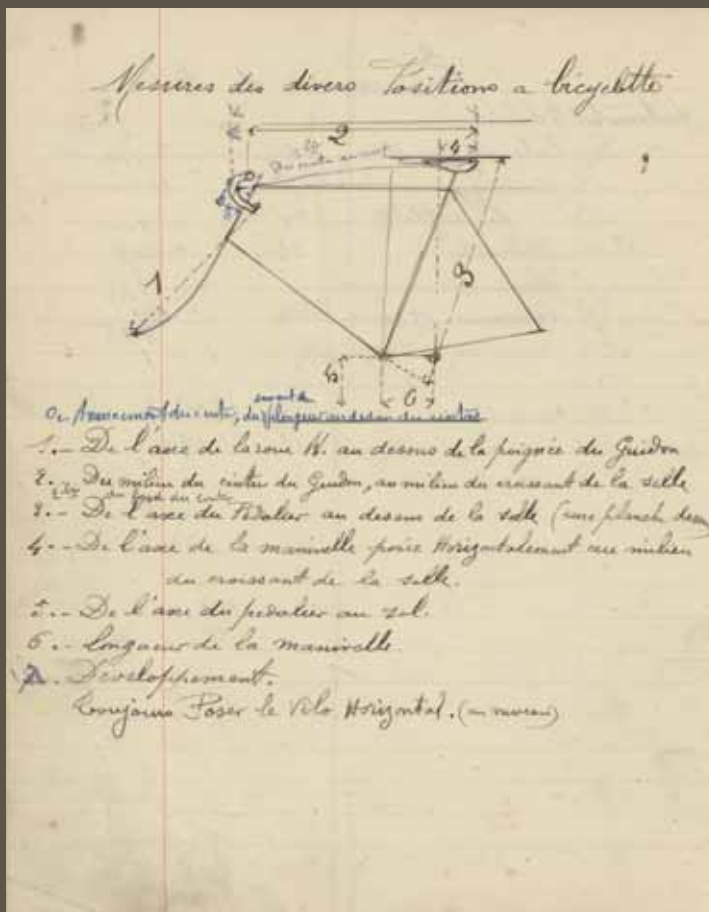 Mesures des divers Positions a bicyclette
2
4
2 bis
Du cintre au
1
3
5
6
0.- du cintre,
1.- De l'axe de la roue R. au dessus de la poignée du Guidon
2.- Du milieu du cintre du Guidon, au milieu du croissant de la selle
2 bis du fond du cintre
3.- De l'axe du Pédalier au dessus de la selle (une planche dessus)
4.- De l'axe de la manivelle posée Horizontalement au milieu
du croissant de la selle.
5.- De l'axe du pedalier au sol.
6.- Longueur de la manivelle.
7. Developpement.
Toujours Poser le Vélo Horizontal. (au niveau)